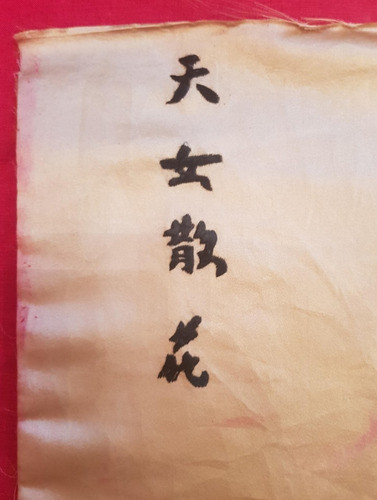 天女散花